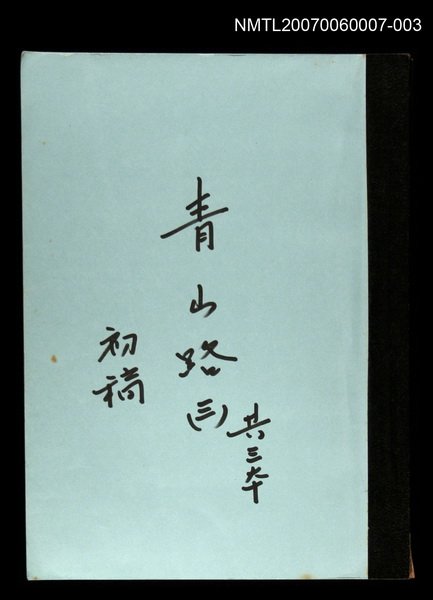 NMTL20070060007-003
青山路(三)
共三本
初稿